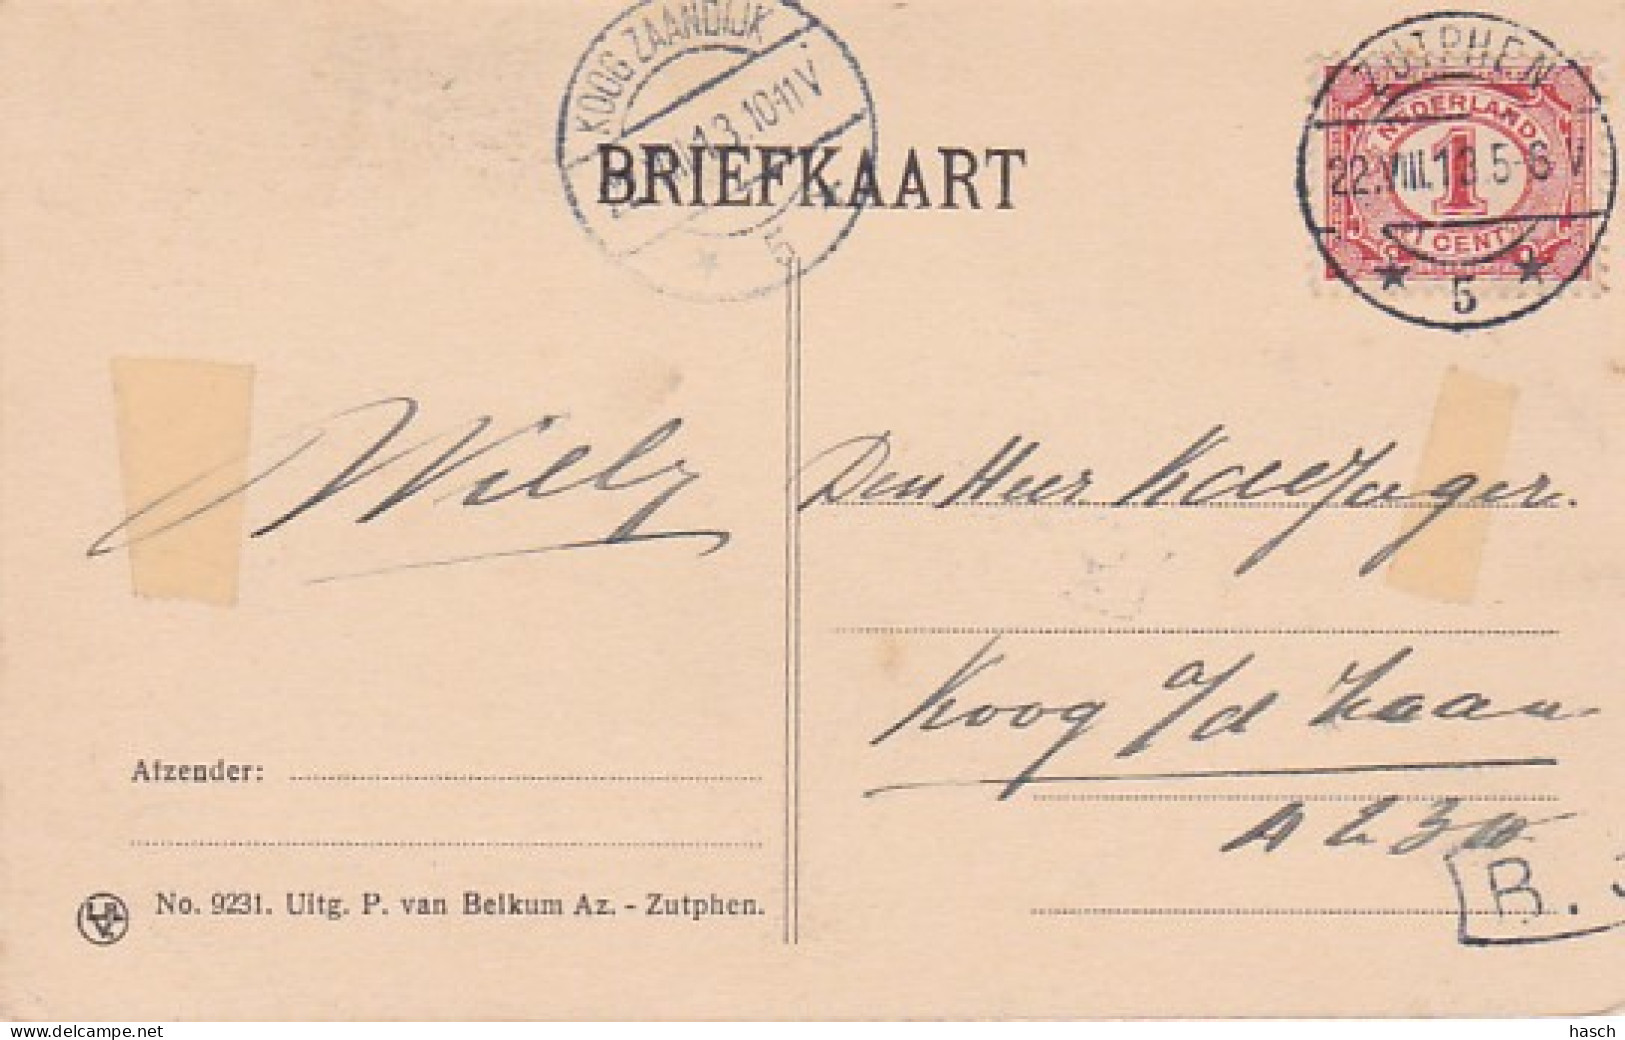 KOOG ZAANDIJK
13.10-11 V
5
BRIEFKAART
ZUTPHEN
22.VIII.13.5-6 V
5
NEDERLAND
1
1 CENT
Willy
Den Heer K de Jager.
Koog a/d Zaan
A 230
Afzender:
No. 9231. Uitg. P. van Belkum Az. - Zutphen.
B.
delcampe.net
hasch